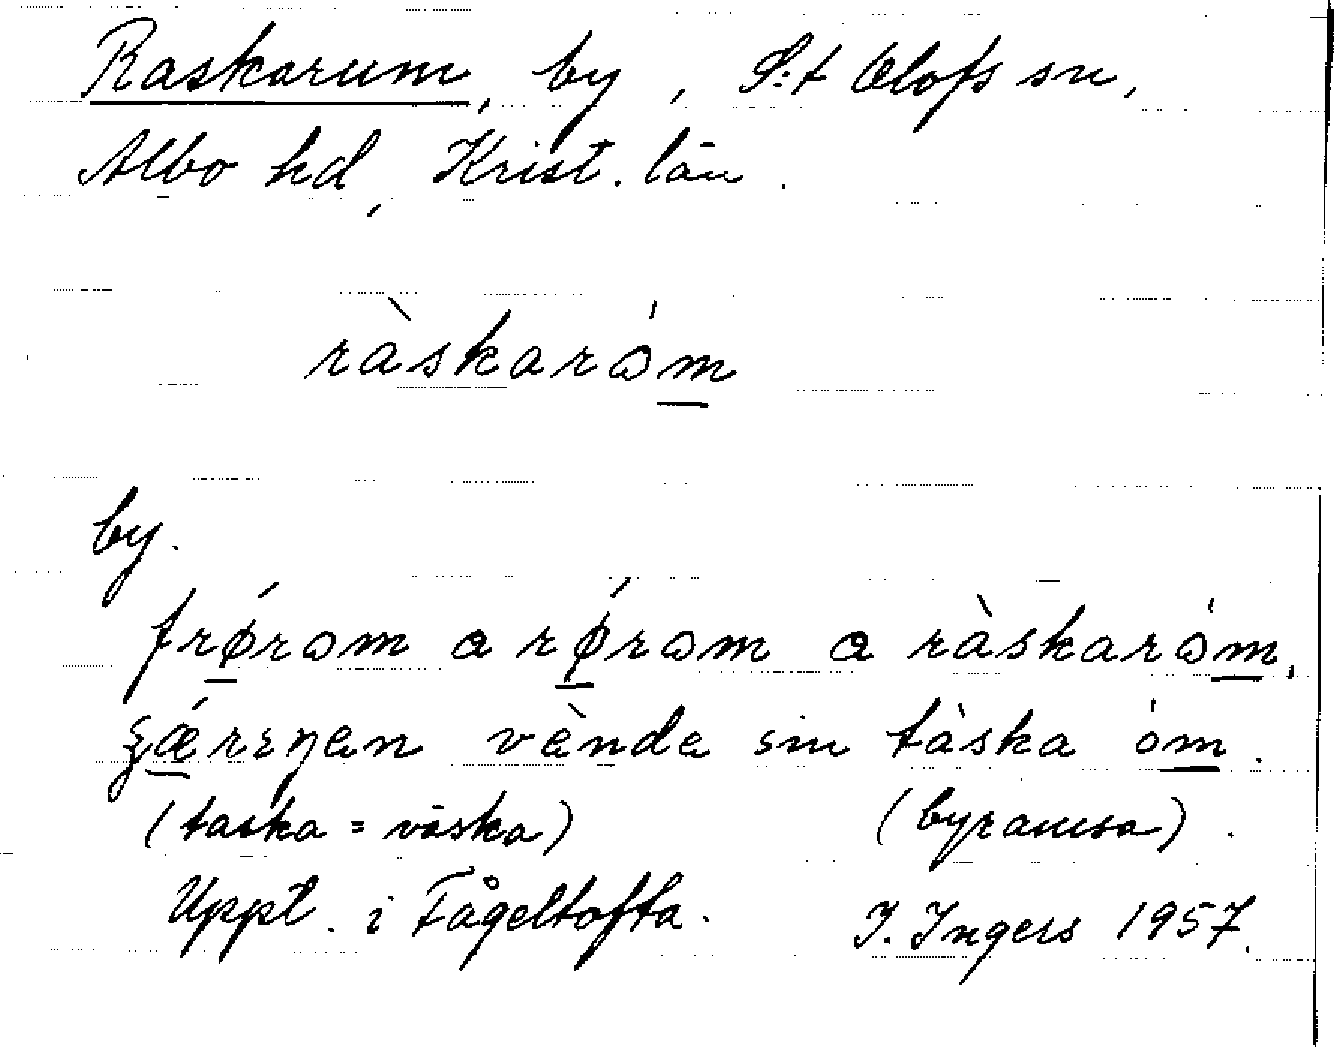 Raskarum, by, S:t Olofs sn,
Albo hd, Krist. län.
ràskaróm
by.
frǿrom a rǿrom a ràskaróm,
ʒǽrrŋen vènde sin tàska óm.
(taska = väska) (byramsa).
Uppt. i Fågeltofta. I. Ingers 1957.